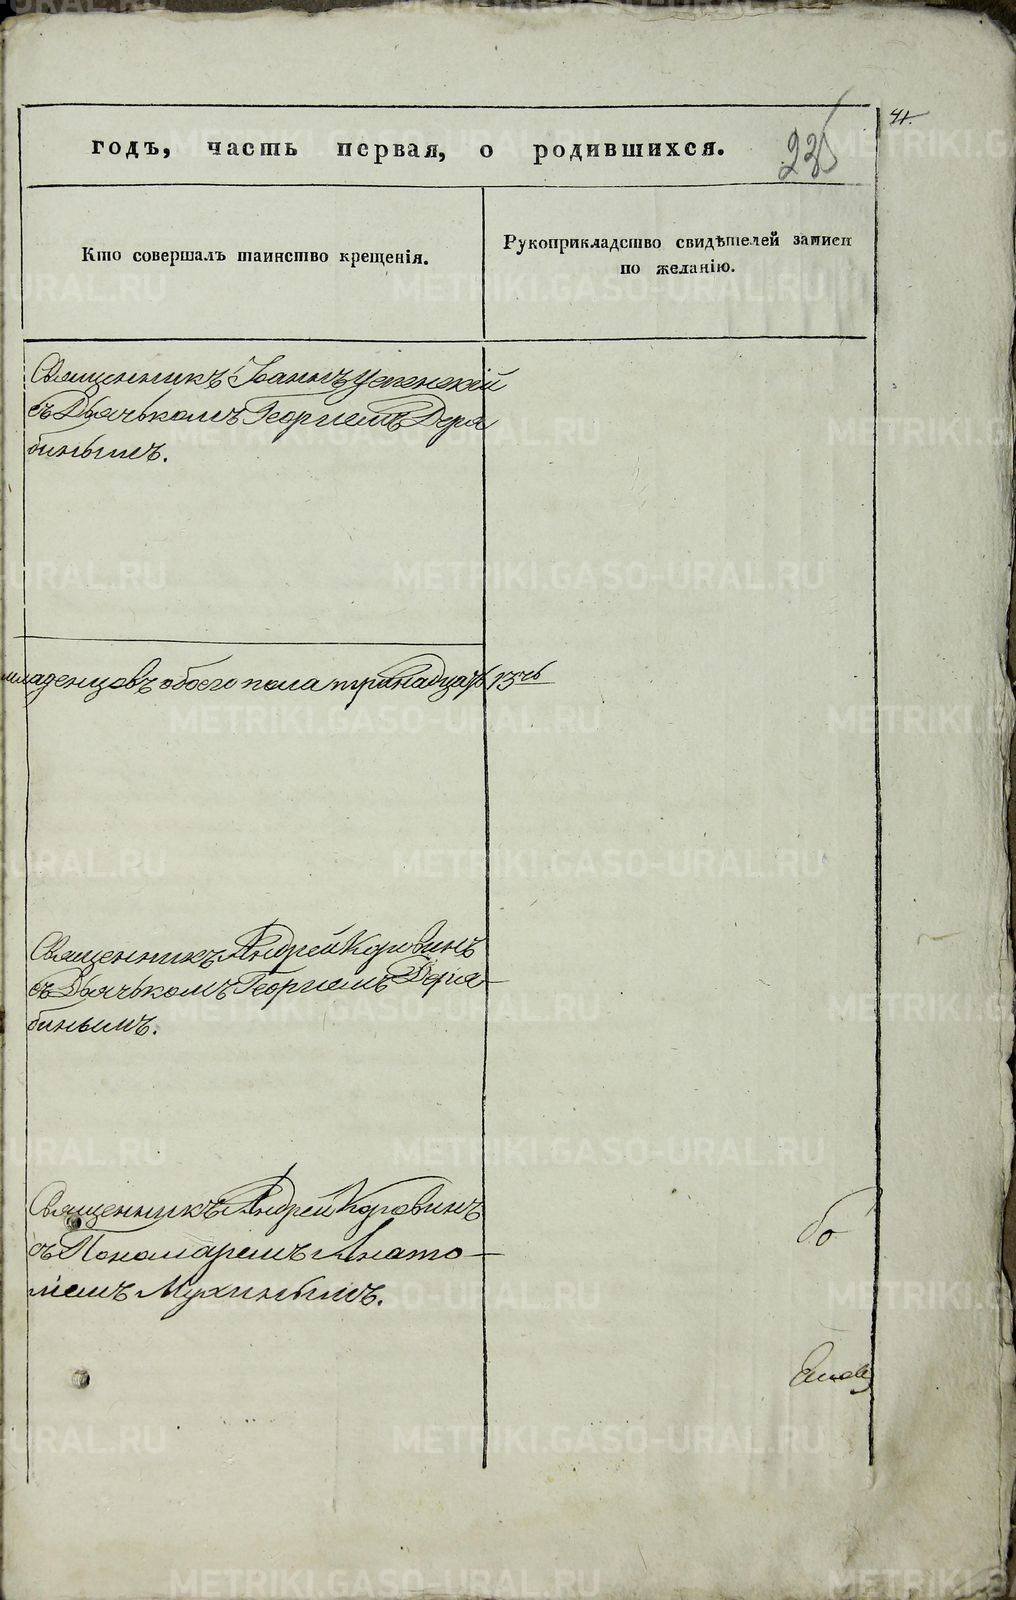 41.
годъ, часть первая, о родившихся.
225
Кто совершалъ таинство крещенія.
Рукоприкладство свидѣтелей записи
по желанію.
Священникъ Іоаннъ Успенскій
съ Дьячькомъ Георгіемъ Деря
бинымъ.
младенцовъ обоего пола тринадцать 13ть
Священникъ Андрей Коровинъ
съ Дьячькомъ Георгіемъ Деря-
бинымъ.
Священникъ Андрей Коровинъ
съ Пономаремъ Анато-
ліемъ Мухинымъ.
бо
METRIKI.GASO-URAL.RU